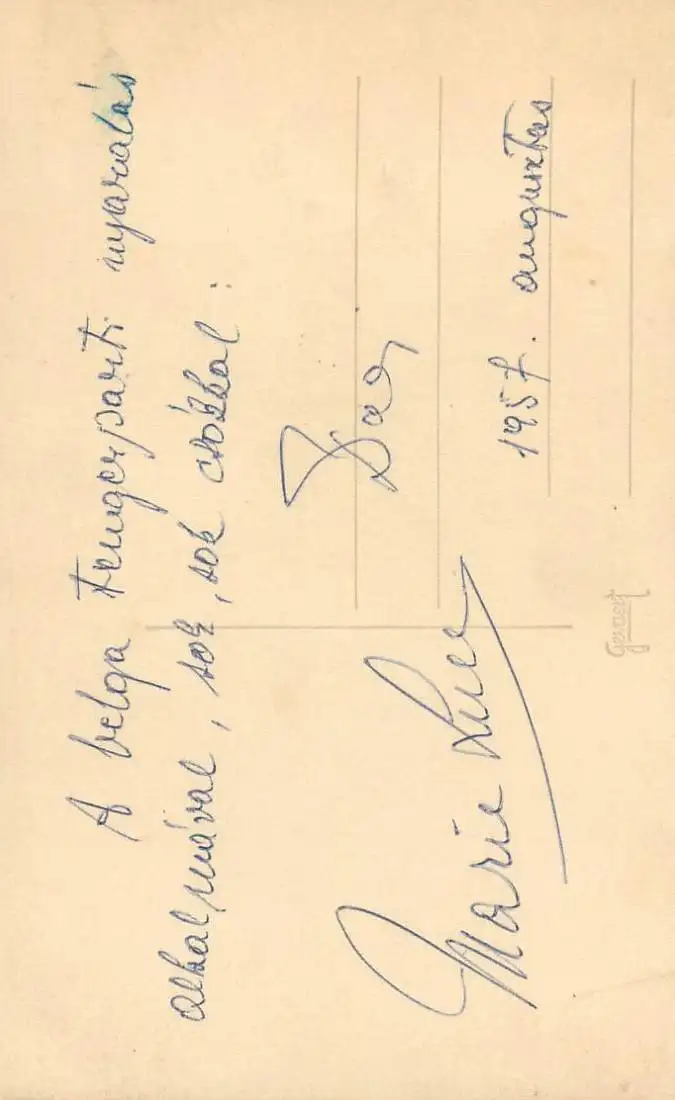 A belga tengerparti nyaralás
alkalmával, sok, sok csókkal:
Marie
1957. augusztus
Gevaert